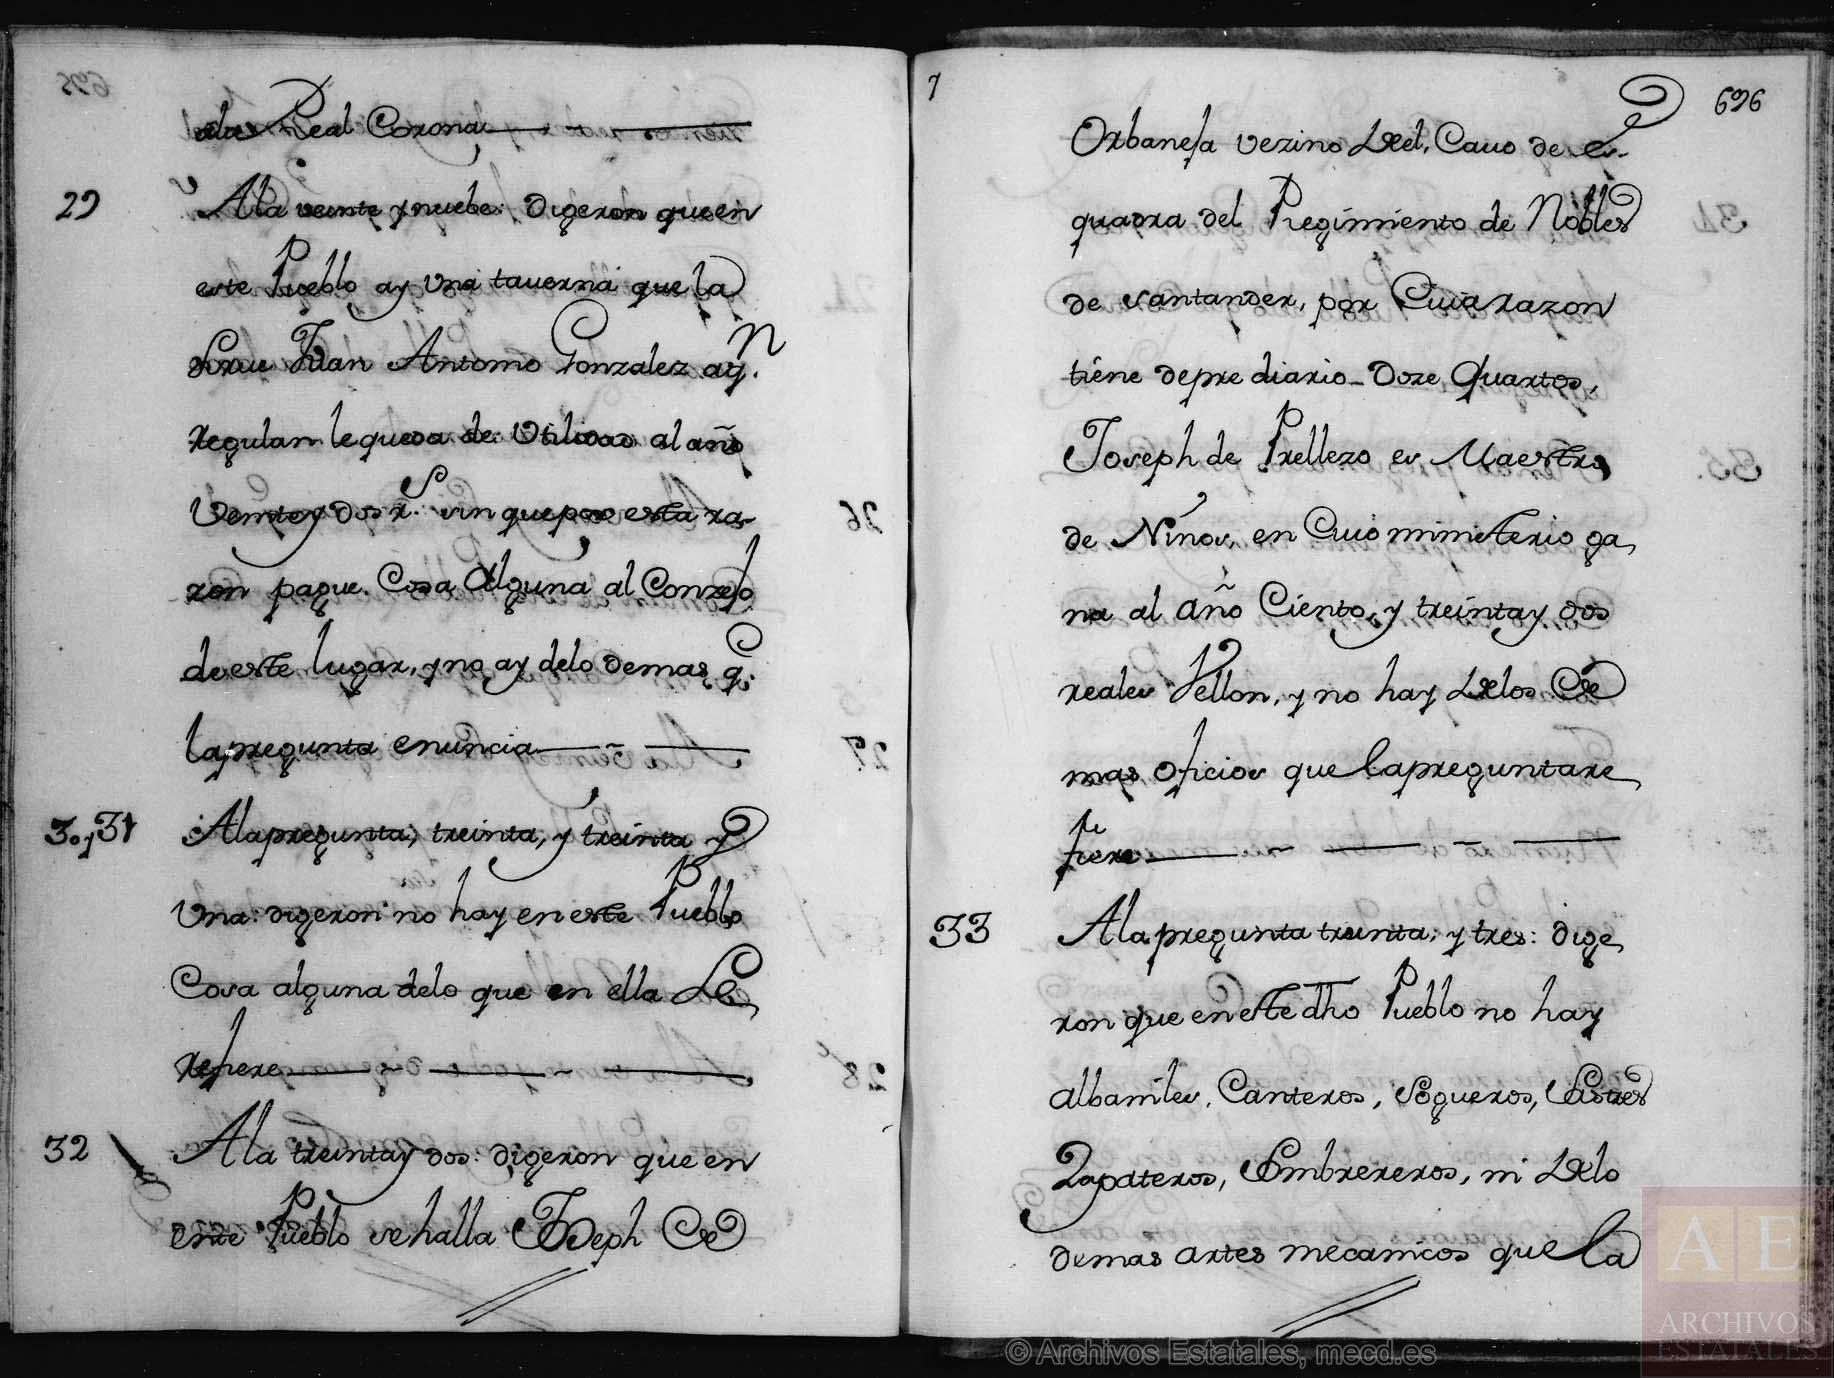 ala Real Corona
29 Ala veinte ynuebe: digeron queen
este Pueblo ay Vna tauerna que la
sirue Juan Antonio Gonzalez aq.n
regulan lequeda de Vtilidad al año
Veintey dos r.s sin quepor esta ra-
zon pague Cosa Alguna al Conzejo
deeste lugar, yno ay delo demas q.e
lapregunta enuncia
30,,31 Alapregunta, treinta, y treinta y
Vna: digeron no hay eneste Pueblo
Cosa alguna delo que en ella se
refiere
32 Ala treintay dos: digeron que en
este Pueblo sehalla Joseph de
7
696
Orbaneja vezino de el, Cauo de es-
quadra del Regimiento de Nobles
de santander, por Cuia razon
tiene depre diario Doze quartos,
Joseph de Prellezo es Maestro
de Niños, en Cuio ministerio ga
na al año Ciento, y treintay dos
reales Vellon, y no hay delos de
mas oficios que lapreguntare
fiere
33 Alapregunta treinta, y tres: dige
ron que eneste dho Pueblo no hay
albañiles, Canteros, sogueros, sastres
Zapateros, sombrereros, ni delo
demas artes mecanicos que la
© Archivos Estatales, mecd.es
AE
ARCHIVOS
ESTATALES